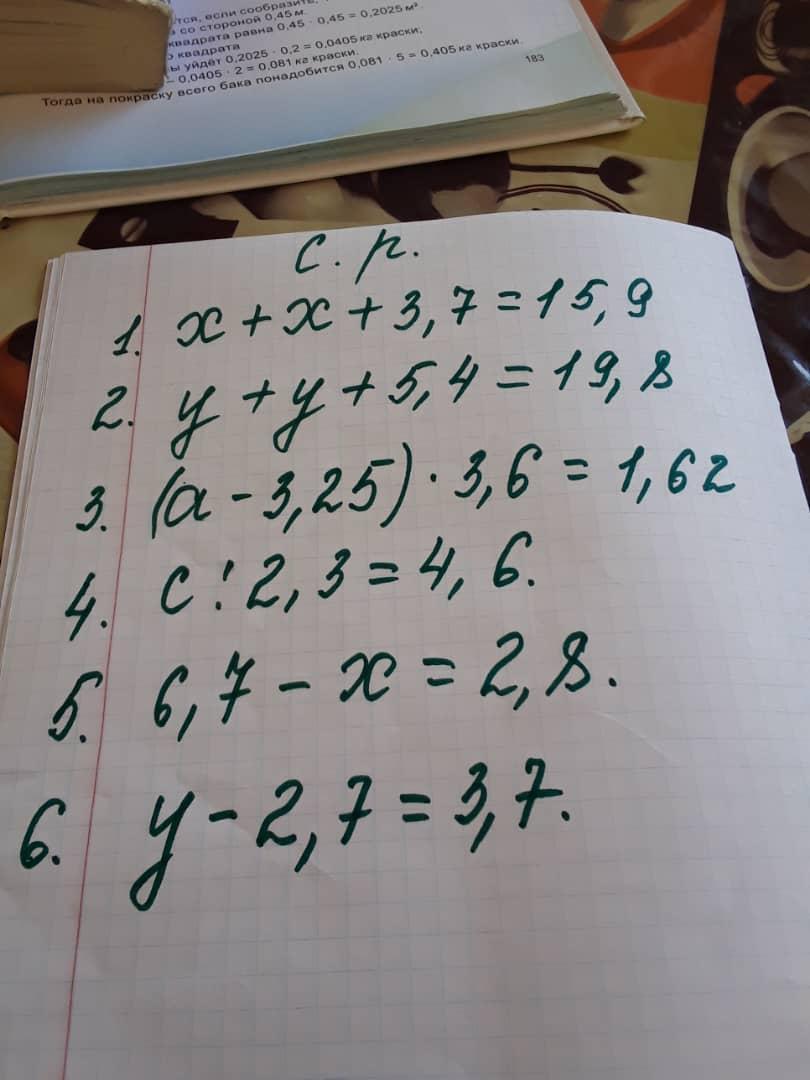 тся, если сообразить,
со стороной 0,45 м.
квадрата равна 0,45 · 0,45 = 0,2025 м².
квадрата
ы уйдёт 0,2025 · 0,2 = 0,0405 кг краски;
– 0,0405 · 2 = 0,081 кг краски.
Тогда на покраску всего бака понадобится 0,081 · 5 = 0,405 кг краски.
183
с. р.
1. x + x + 3,7 = 15,9
2. y + y + 5,4 = 19,8
3. (a - 3,25) · 3,6 = 1,62
4. c : 2,3 = 4,6.
5. 6,7 - x = 2,8.
6. y - 2,7 = 3,7.